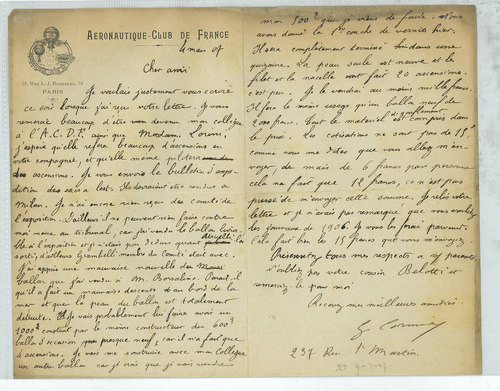 AÉRONAUTIQUE-CLUB DE FRANCE
58, Rue J.-J. Rousseau, 58
PARIS
4 mars 07
Cher ami
Je voulais justement vous écrire
ce soir lorsque j'ai reçu votre lettre. Je vous
remercie beaucoup d'être devenu mon collègue
à l'A.C.D.F. ainsi que Madame
j'espère qu'elle refera beaucoup d'ascensions en
votre compagnie, et qu'elle même pilotera
des ascensions. Je vous envoie le bulletin d'expé-
dition des sacs a lest. Ils devraient être rendus a
Milan. Je n'ai encore rien reçu du comité de
l'exposition. D'ailleurs il ne peuvent rien faire contre
moi même au tribunal, car j'ai vendu le ballon livra-
ble a l'exposition et je n'etais pas dedans quand
sorti, d'ailleurs membre du Comité était avec.
J'ai appris une mauvaise nouvelle du
ballon que j'ai vendu à Mr Borsalino. Parait il
qu'il a fait un mauvaise descente au bord de la
mer et que la peau du ballon est totalement
détruite. Je vais probablement lui faire avoir un
1000 construit par le même constructeur du 600
ballon d'occasion presque neuf, car il n'a fait que
4 ascensions. Je vais me construire avec mon Collègue
un autre ballon car je crois que je vais vendre
mon 900 que je viens de faire. Nous
avons donné la 1re couche de vernis hier.
Il sera completement terminé dans une
quinzaine. La peau seule est neuve et le
filet et la nacelle ont fait 20 ascensions.
c'est peu. Je le vendrai au moins mille francs.
Il fera le même usage qu'un ballon neuf de
2000 frans. tout le materiel est compris dans
le prix. Les cotisations ne sont pas de 15f
comme vous me dites que vous allez m'en-
voyer, de mais de 6 francs par personne
cela ne fait que 12 francs, ce n'est pas
pressé de m'envoyer cette somme. Je relis votre
lettre et je n'avais pas remarqué que vous vouliez
les journaux de 1906. Je vous les ferai parvenir.
Cela fait bien les 15 francs que vous m'envoyez.
Présentez tous mes respects a
votre cousin
remerciez le pour moi.
Recevez mes meilleures amitiés
237 Rue St Martin